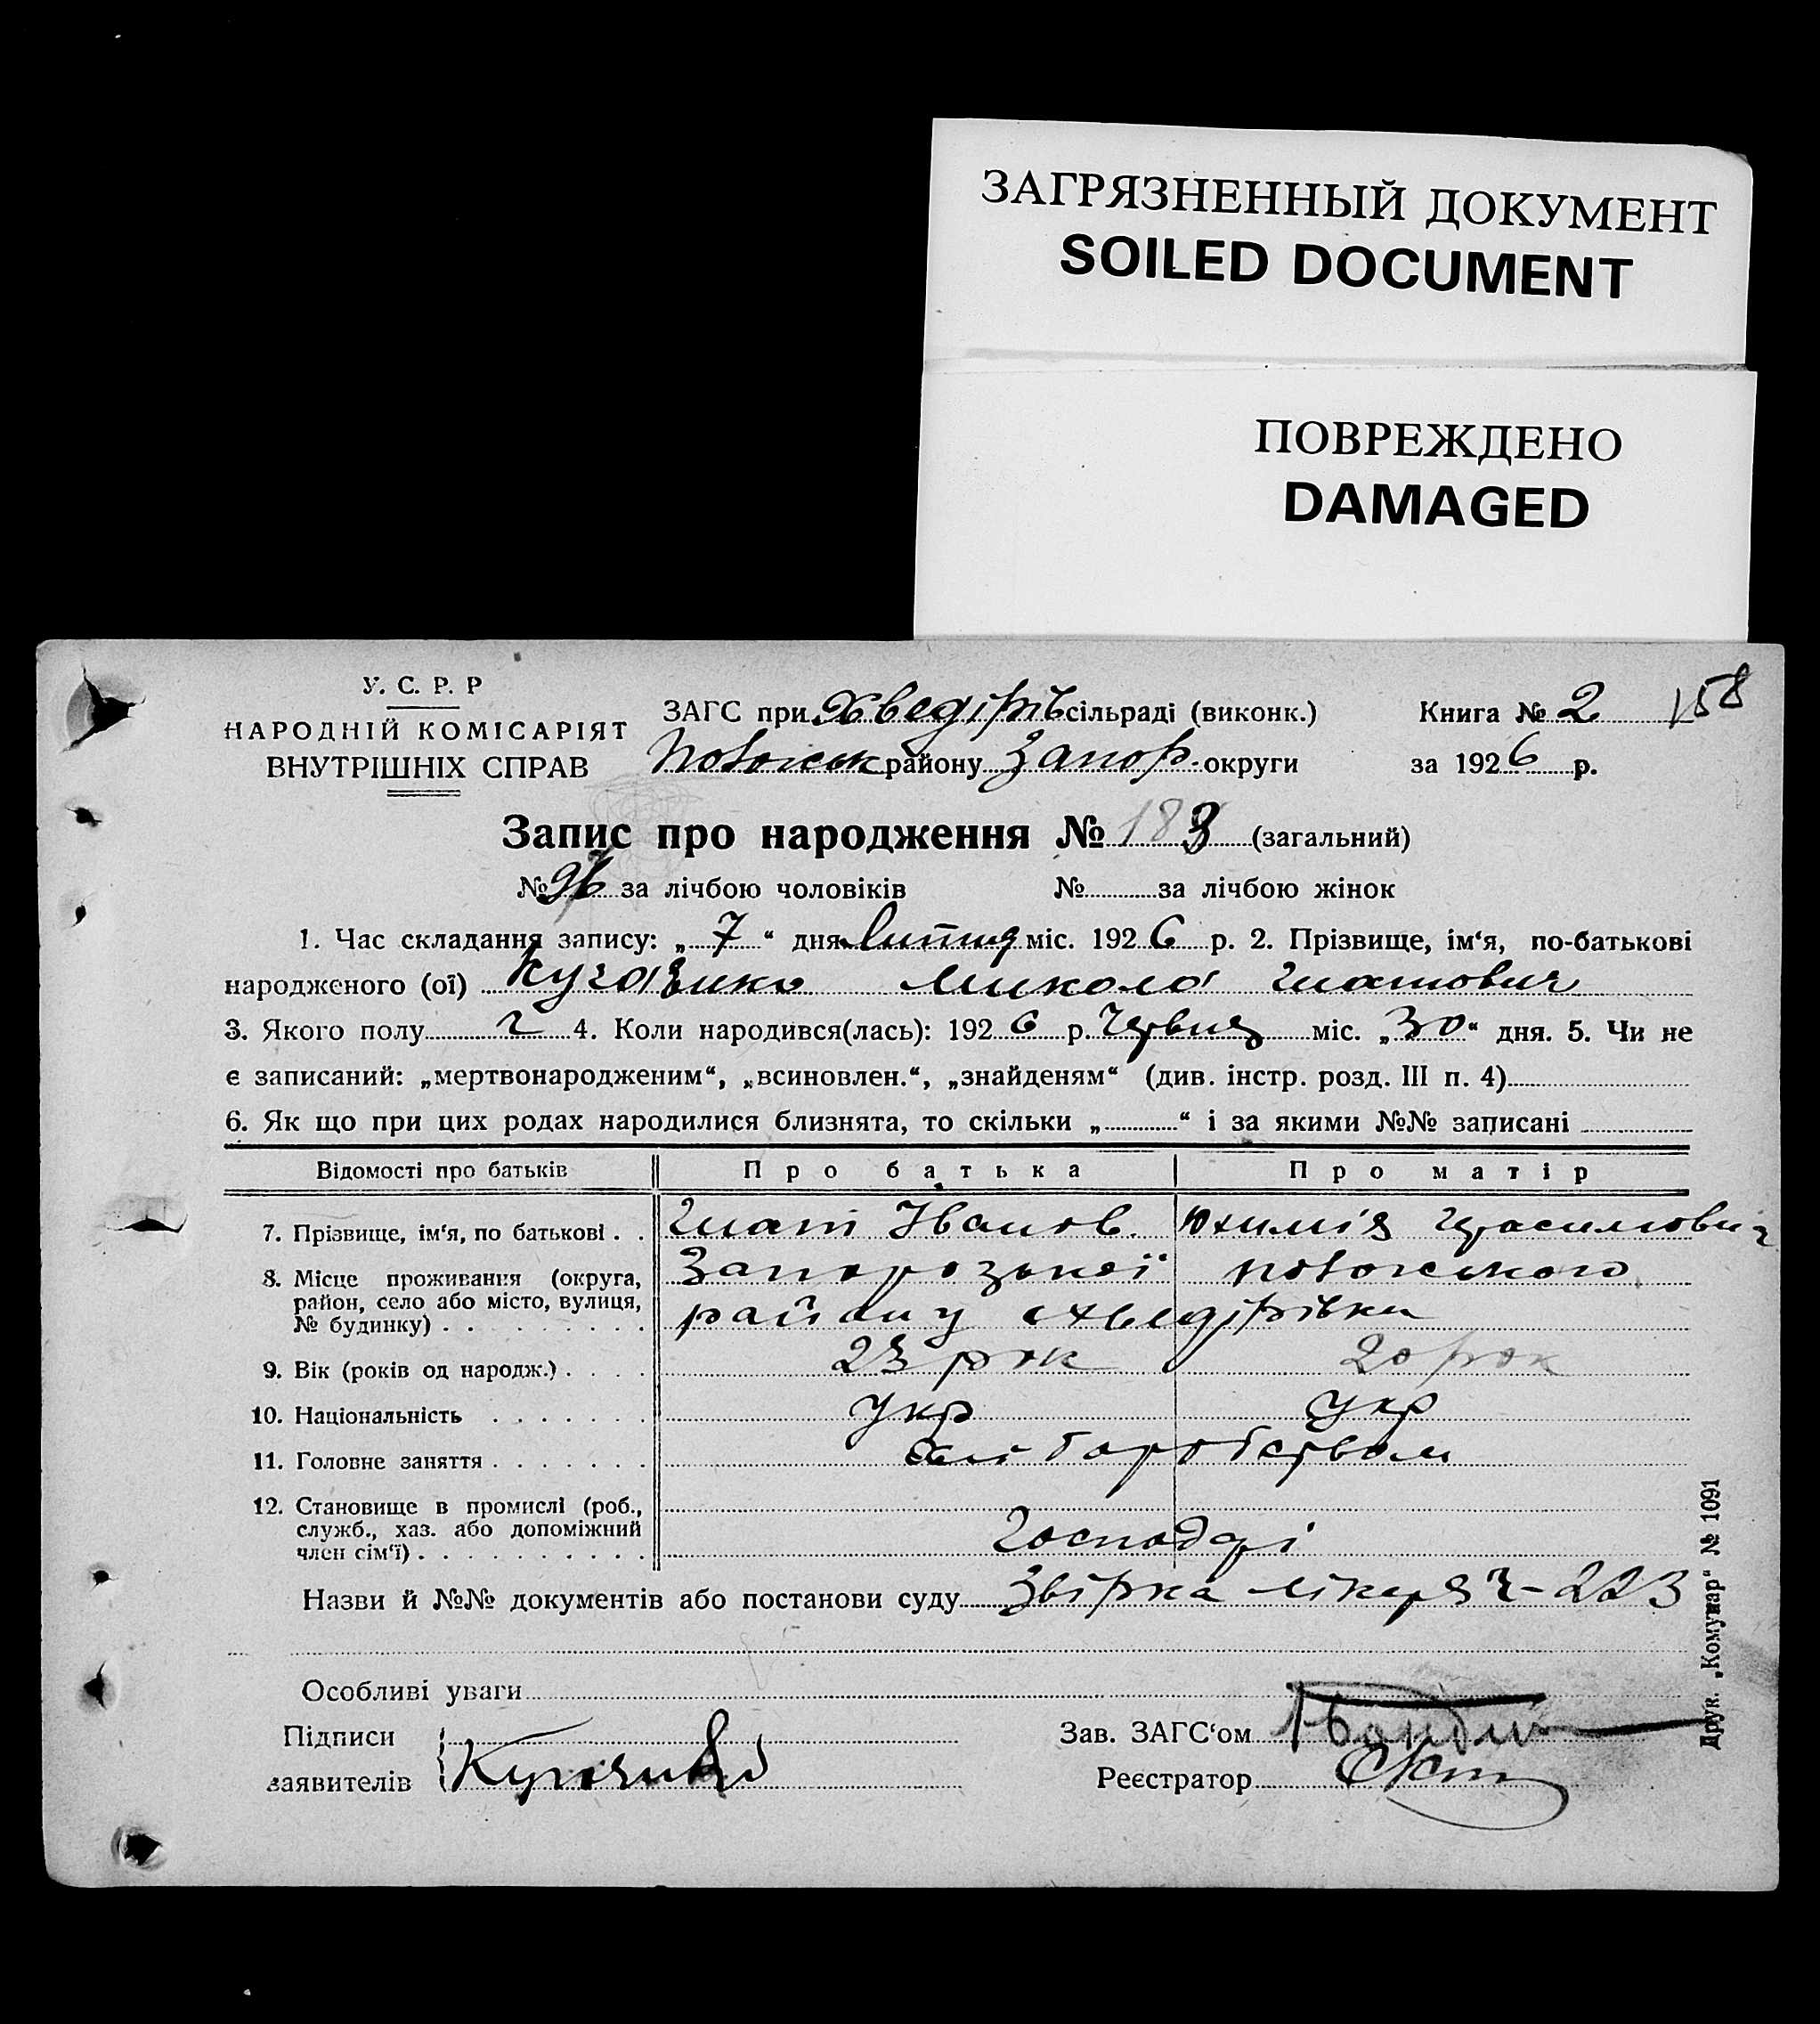 ЗАГРЯЗНЕННЫЙ ДОКУМЕНТ
SOILED DOCUMENT
ПОВРЕЖДЕНО
DAMAGED
У. С. Р. Р
НАРОДНІЙ КОМІСАРІЯТ
ВНУТРІШНІХ СПРАВ
ЗАГС при Хведірів сільраді (виконк.) Книга № 2 158
району Запор. округи за 1926 р.
Запис про народження № 183 (загальний)
№ 96 за лічбою чоловіків № за лічбою жінок
1. Час складання запису: „ 7 “ дня міс. 1926 р. 2. Прізвище, ім‘я, по-батькові
народженого (ої) Микола Гнатович
3. Якого полу ч 4. Коли народився(лась): 1926 р. Червня міс. „30“ дня. 5. Чи не
є записаний: „мертвонародженим“, „всиновлен.“, „знайденям“ (див. інстр. розд. III п. 4)
6. Як що при цих родах народилися близнята, то скільки „ “ і за якими №№ записані
Відомості про батьків Про батька Про матір
7. Прізвище, ім‘я, по батькові . . Гнат Іванов. Юхимія Герасимович
8. Місце проживання (округа, район, село або місто, вулиця, № будинку) . Запорозької
району Хведірівки
9. Вік (років од народж.) . . . . 23 рок 20 рок
10. Національність . . . . . . . укр укр
11. Головне заняття . . . . . . . хліборобством
12. Становище в промислі (роб.,
служб., хаз. або допоміжний
член сім‘ї) . . . . . . . . . . Господарі
Назви й №№ документів або постанови суду Звірка лікаря ч-223
Особливі уваги
Підписи
заявителів
Зав. ЗАГС‘ом
Реєстратор
Друк. „Комунар“ № 1091